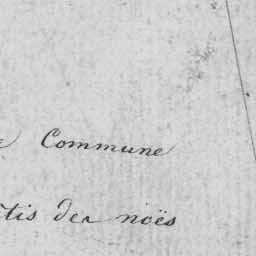 Commune
tis des noës